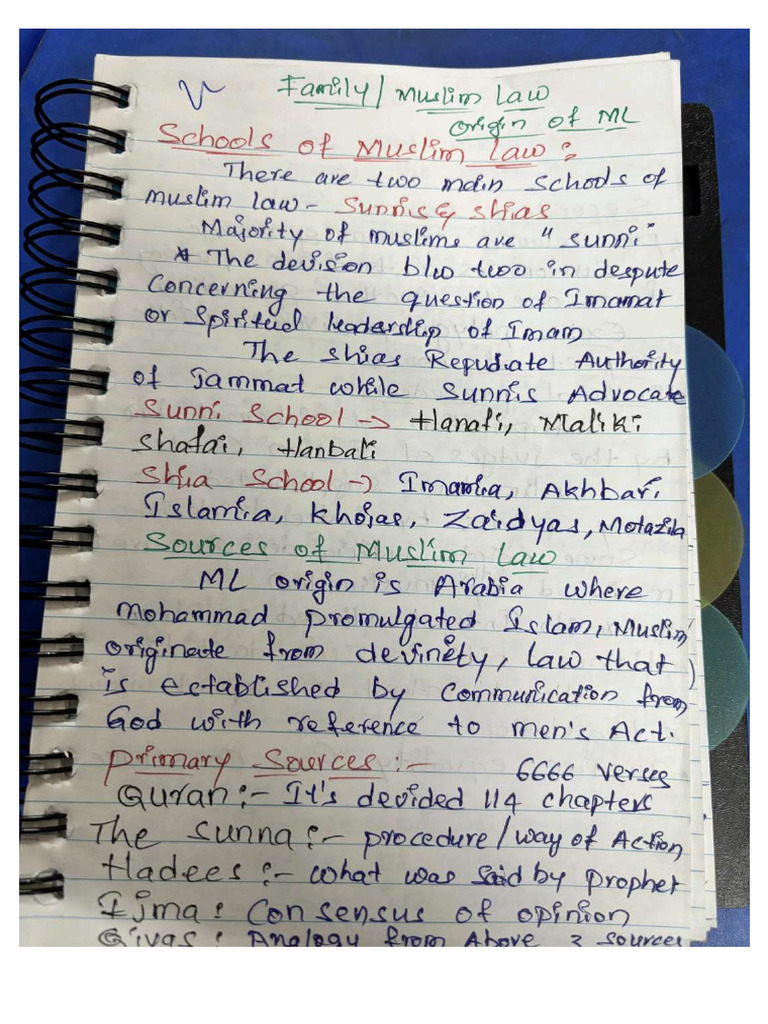 Family / Muslim Law
origin of ML
Schools of Muslim Law :
There are two main schools of
muslim law - Sunnis & Shias
Majority of muslims are "Sunni"
* The devision b/w two in despute
Concerning the question of Imamat
or Spiritual leadership of Imam
The Shias Repudiate Authority
of Jammat while Sunnis Advocate
Sunni School -> Hanafi, Maliki
Shafai, Hanbali
Shia School -> Imamia, Akhbari
Islamia, Khojas, Zaidyas, Motazila
Sources of Muslim Law
ML origin is Arabia where
Mohammad promulgated Islam, Muslim
originate from devinety, law that
is established by Communication from
God with reference to men's Act.
Primary Sources :-
6666 verses
Quran :- It's devided 114 chapters
The Sunna :- procedure / way of Action
Hadees :- what was said by prophet
Ijma : Consensus of opinion
Qiyas : Analogy from Above 3 sources